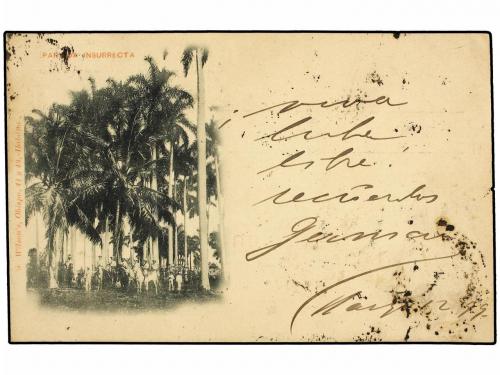 PARTIDA INSURRECTA
Wilson's, Obispo, 41 y 43, Habana.
¡ viva
Cuba
libre!
recuerdos